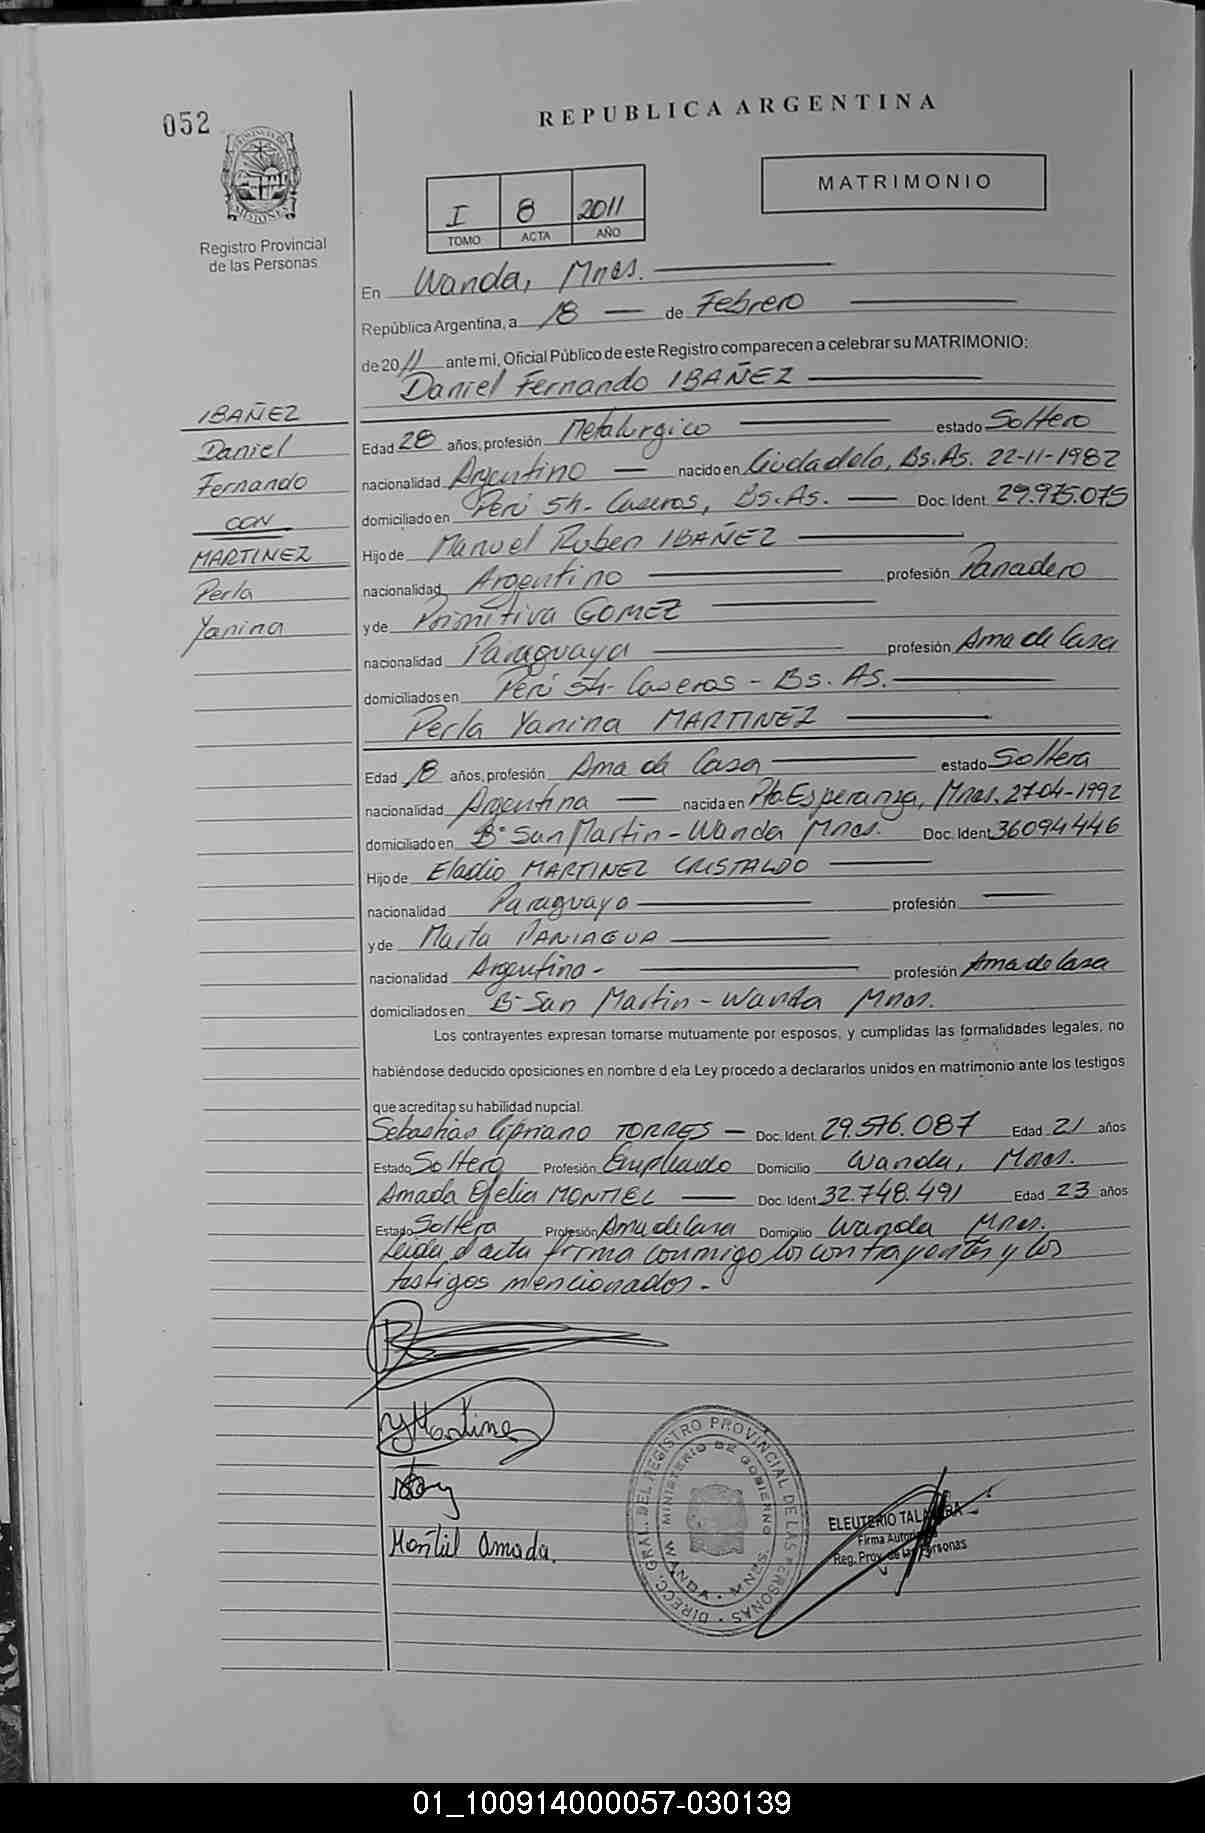 052
REPUBLICA ARGENTINA
MATRIMONIO
I 8 2011
TOMO ACTA AÑO
Registro Provincial
de las Personas
En Wanda, Mnes.
República Argentina, a 18 de Febrero
de 2011 ante mi, Oficial Público de este Registro comparecen a celebrar su MATRIMONIO:
Daniel Fernando IBAÑEZ
IBAÑEZ
Daniel
Fernando
CON
MARTINEZ
Perla
Yanina
Edad 28 años, profesión Metalurgico estado Soltero
nacionalidad Argentino nacido en Ciudadela, Bs.As. 22-11-1982
domiciliado en Perú 54- Caseros, Bs.As. Doc. Ident. 29.975.075
Hijo de Manuel Ruben IBAÑEZ
nacionalidad Argentino profesión Panadero
y de Primitiva GOMEZ
nacionalidad Paraguaya profesión Ama de Casa
domiciliados en Perú 54- Caseros - Bs. As.
Perla Yanina MARTINEZ
Edad 18 años, profesión Ama de Casa estado Soltera
nacionalidad Argentina nacida en Pto Esperanza, Mnes. 27-04-1992
domiciliado en B° San Martin - Wanda Mnes. Doc. Ident 36094446
Hijo de Eladio MARTINEZ CRISTALDO
nacionalidad Paraguayo profesión
y de Marta PANIAGUA
nacionalidad Argentina- profesión Ama de Casa
domiciliados en B° San Martin - Wanda Mnes.
Los contrayentes expresan tomarse mutuamente por esposos, y cumplidas las formalidades legales, no
habiéndose deducido oposiciones en nombre d ela Ley procedo a declararlos unidos en matrimonio ante los testigos
que acreditan su habilidad nupcial.
Sebastian Cipriano TORRES - Doc. Ident. 29.576.087 Edad 21 años
Estado Soltero Profesión Empleado Domicilio Wanda, Mnes.
Amada Ofelia MONTIEL Doc. Ident 32.748.491 Edad 23 años
Estado Soltera Profesión Ama de Casa Domicilio Wanda Mnes.
Leida el acta firma conmigo los contrayentes y los
testigos mencionados.-
YMartinez
Montiel Amada.
DIRECC. GRAL. DEL REGISTRO PROVINCIAL DE LAS PERSONAS
MINISTERIO DE GOBIERNO
WANDA - MNES.
ELEUTERIO
Firma
Reg. Prov. de las Personas
01_100914000057-030139